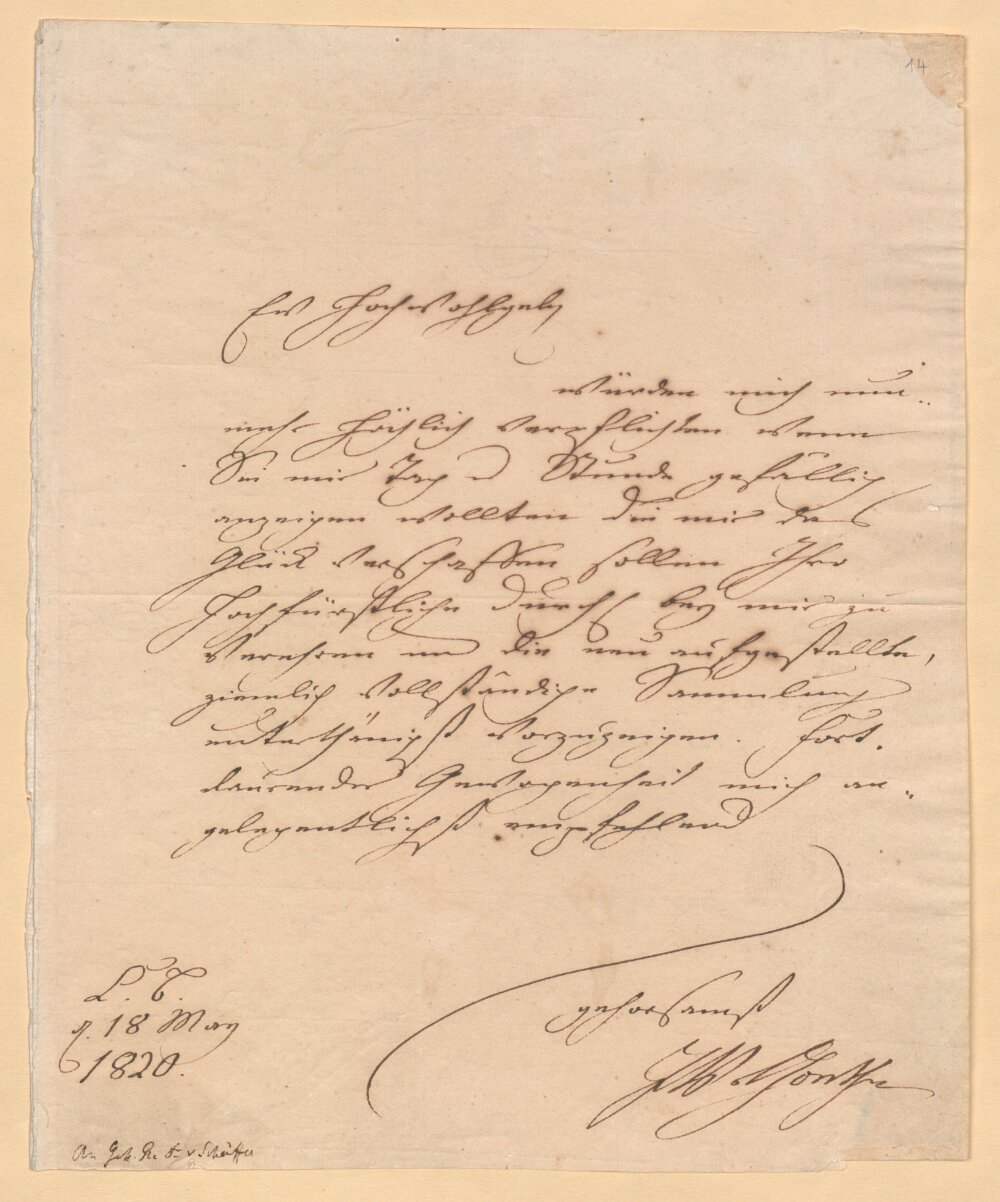 14
Ew Hochwohlgeb
würden mich nun..
mehr höchlich verpflichten wenn
Sie mir Tag u Stunde gefällig
anzeigen wollten die mir das
Glück verschaffen sollen Ihro
Hochfürstliche Durchl bey mir zu
verehren und die neu aufgestellte,
ziemlich vollständige Sammlung
unterthänigst vorzuzeigen. Fort.
daurender Gewogenheit mich an..
gelegentlichst empfehlend
gehorsamst
JWvGoethe
d. 18 May
1820.
An Geh. v Schäffer